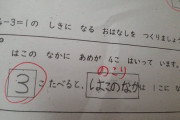 4-3=1の しきに なる おはなしを つくりましょう
はこの なかに あめが 4こ はいって います。
のこり
3 こ たべると、はこのなか は 1こに な